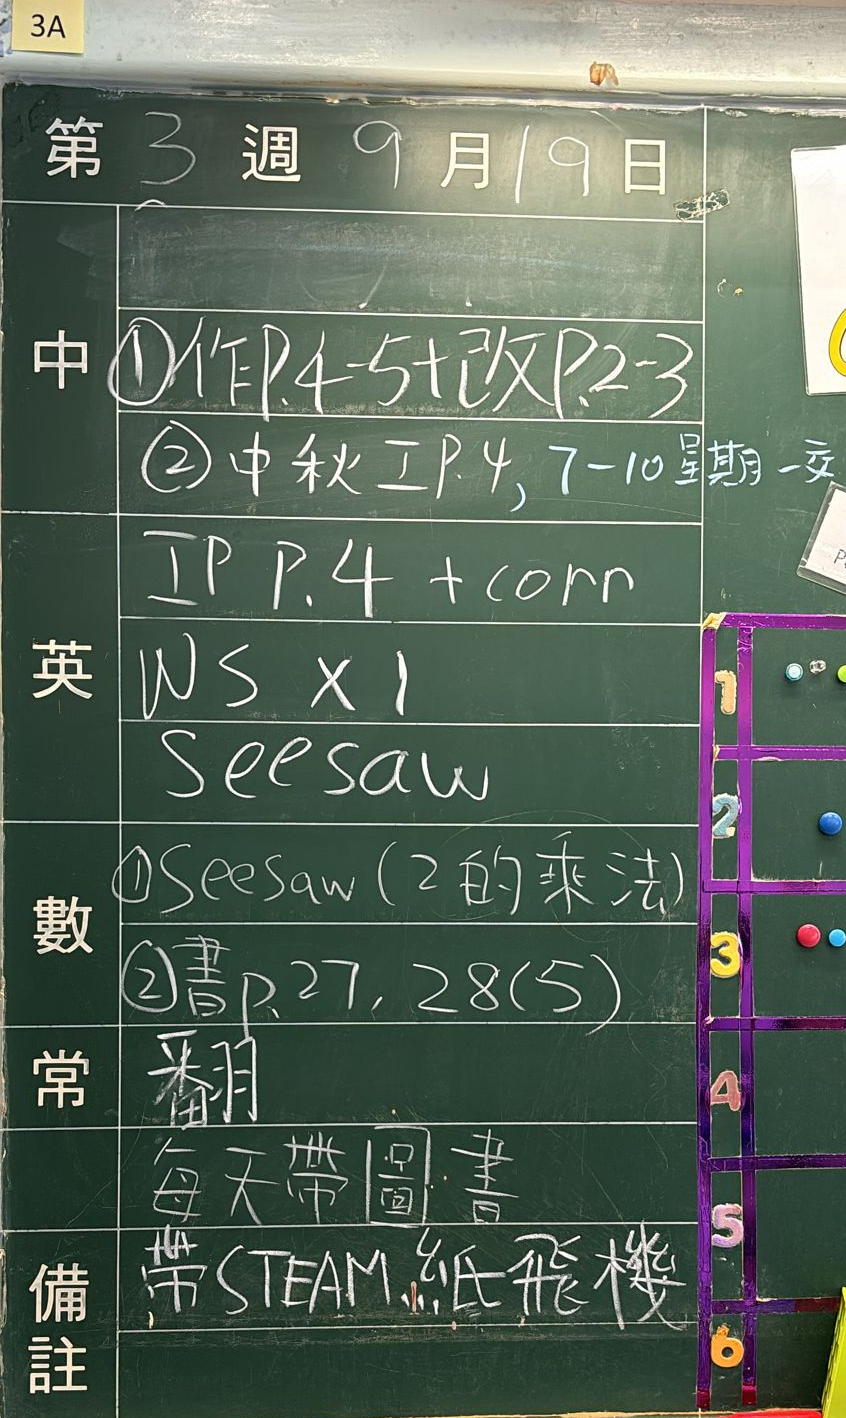 3A
第3週9月19日
中
①作P.4-5+改P.2-3
②中秋工P.4, 7-10星期一交
英
IP P.4 + corr
WS x 1
Seesaw
數
①Seesaw (2的乘法)
②書P.27, 28(5)
常
翻
每天帶圖書
備註
帶STEAM紙飛機
1
2
3
4
5
6